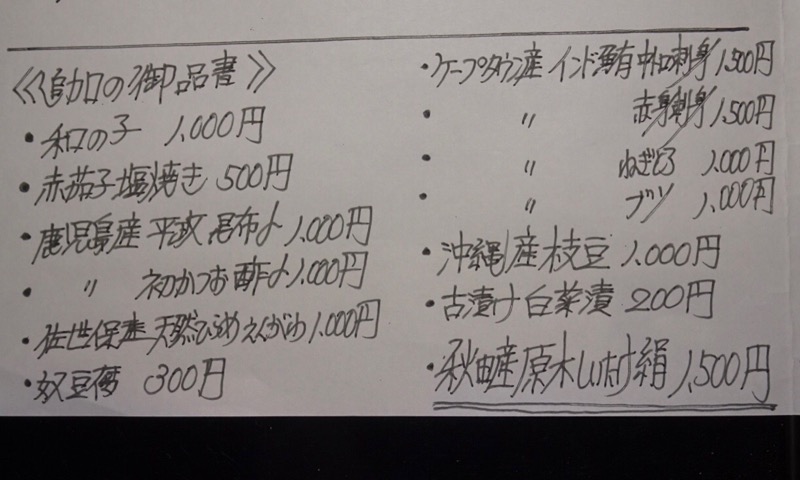 《追加の御品書》
・和の子 1,000円
・赤茄子塩焼き 500円
・鹿児島産 平政 昆布〆 1,000円
・ 〃 初かつお 酢〆 1,000円
・佐世保産 天然ひらめ えんがわ 1,000円
・奴豆腐 300円
・ケープタウン産 インド鮪 中トロ刺身 1,500円
・ 〃 赤身刺身 1,500円
・ 〃 ねぎとろ 1,000円
・ 〃 ブツ 1,000円
・沖縄産枝豆 1,000円
・古漬け白菜漬 200円
・秋田産原木しいたけ絹 1,500円